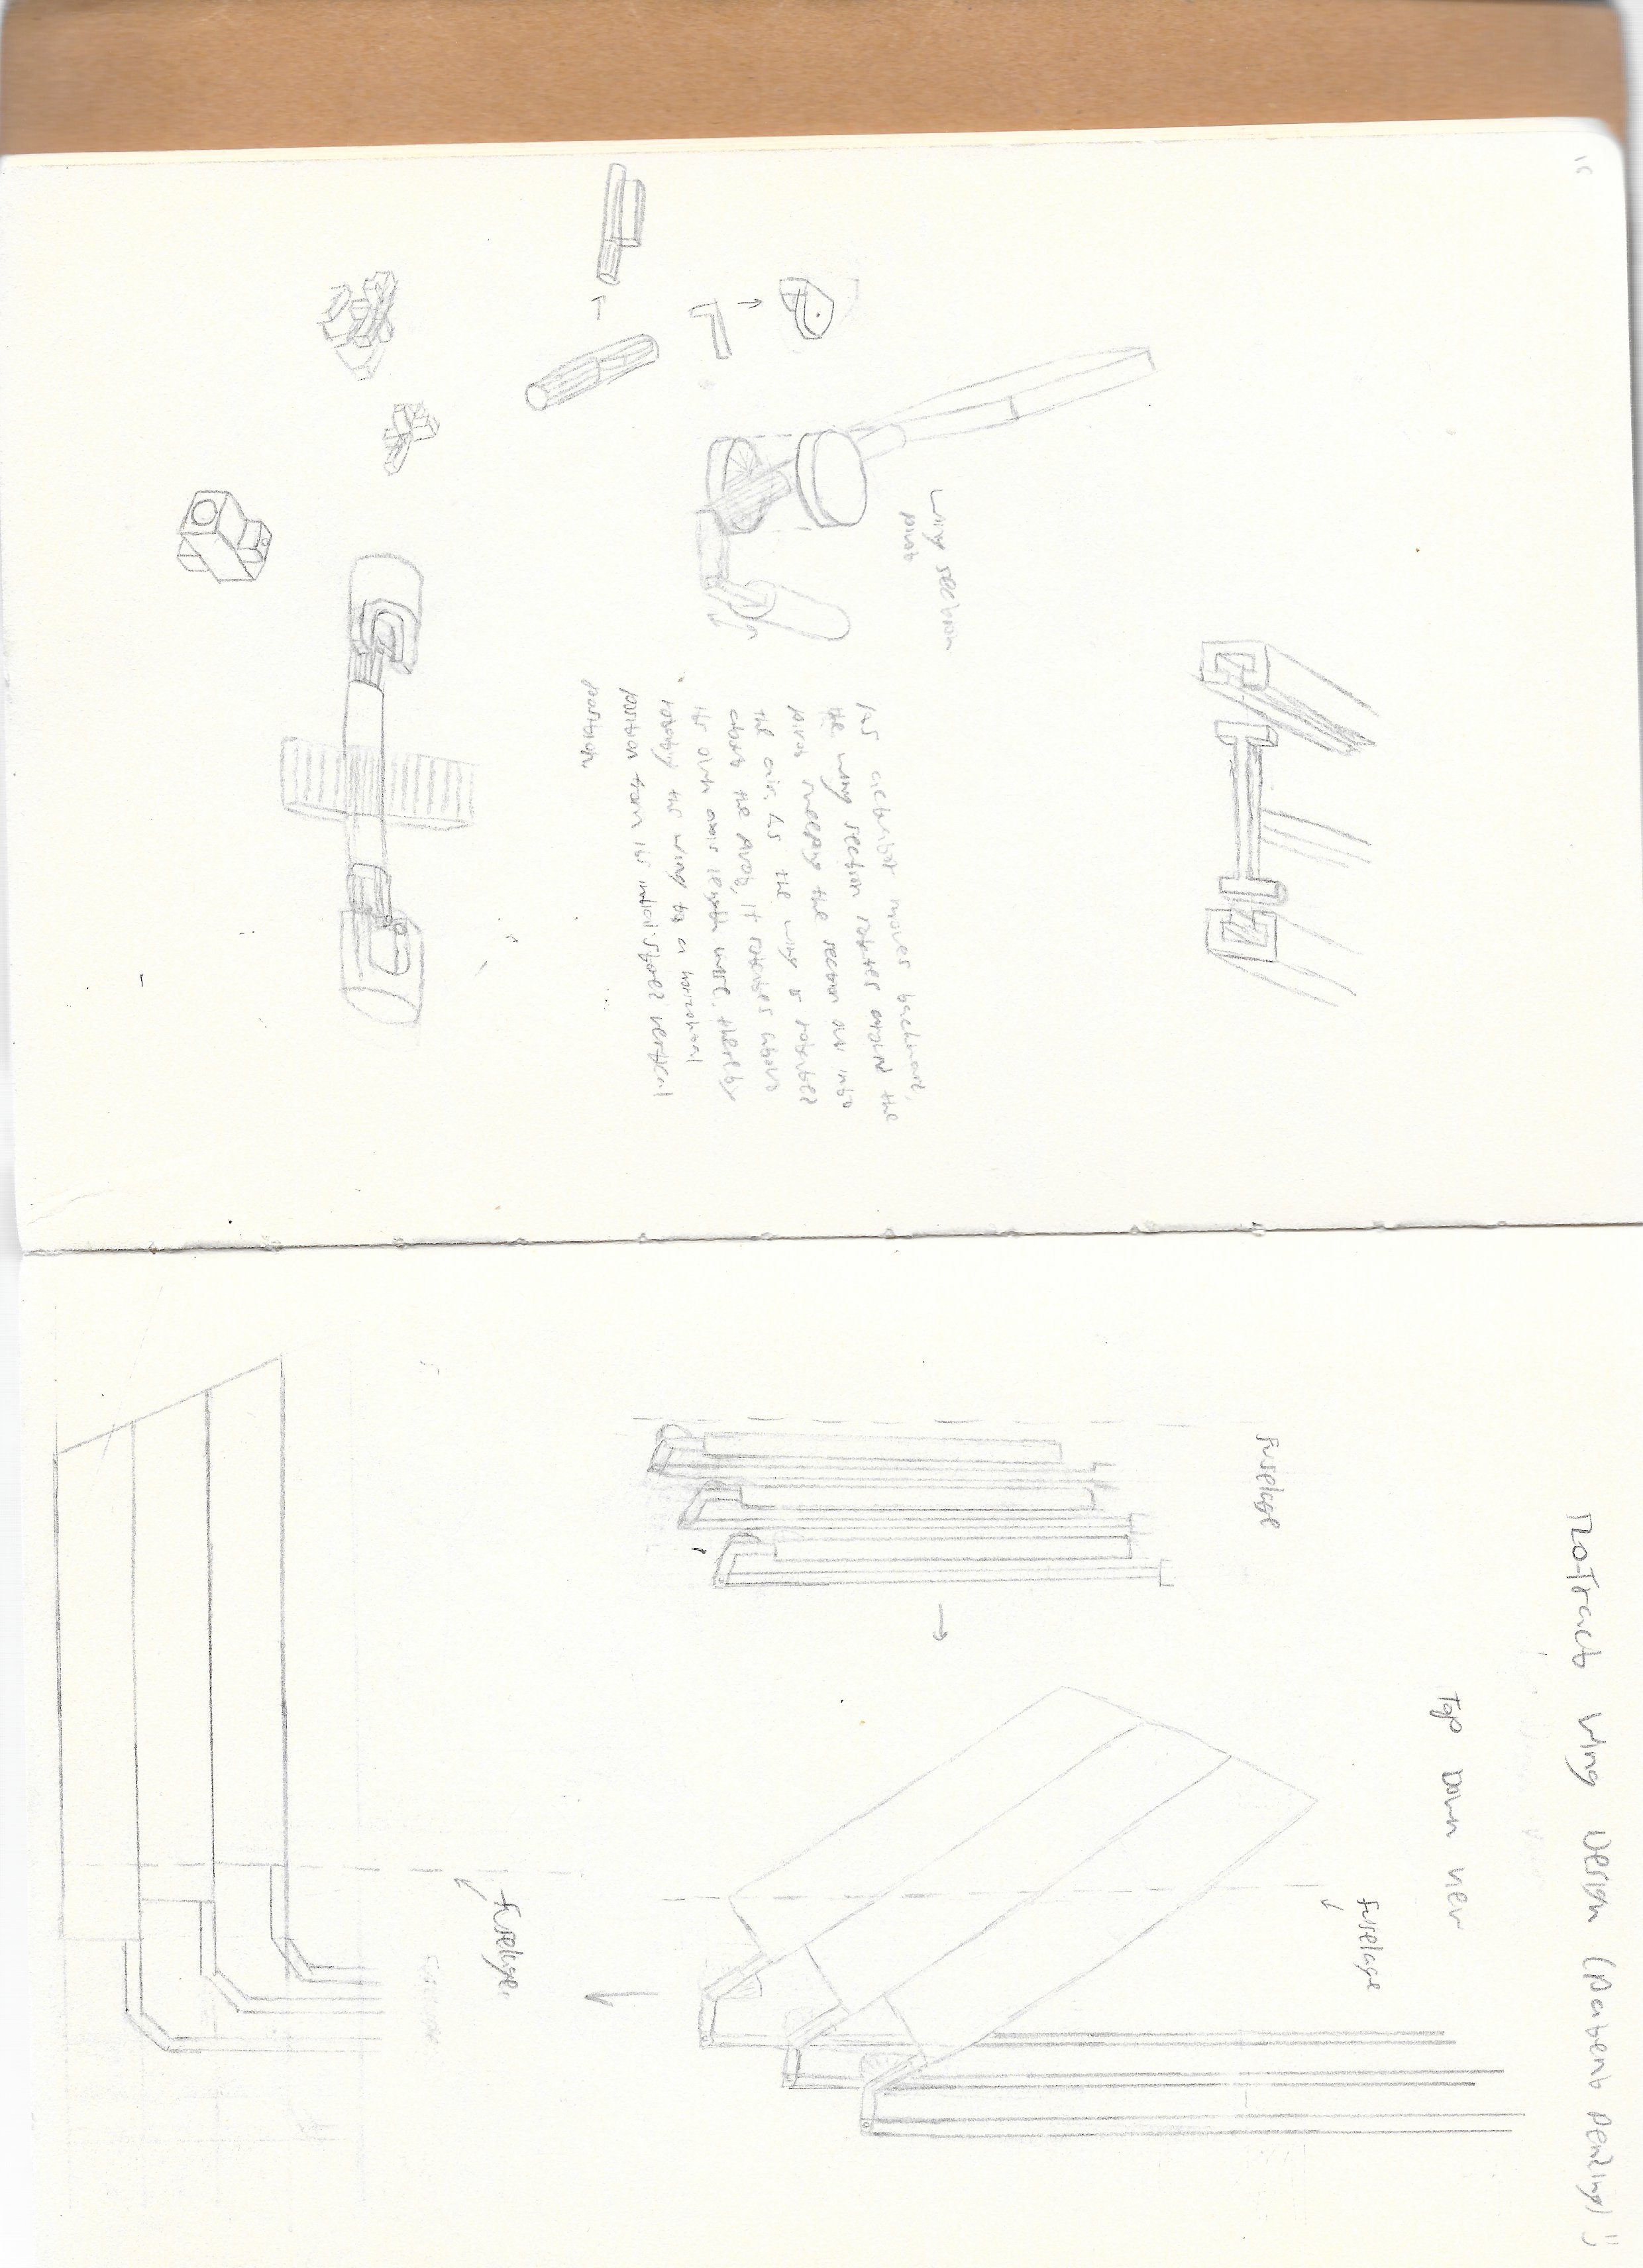 Wing section
pivot
As actuator moves backward,
the wing section rotates around the
pivot sweeping the section out into
the air. As the wing rotates
about the pivot, it rotates about
its own axis length wise, thereby
rotating the wing to a horizontal
position from its initial stored vertical
position.
Ro-Tract Wing Design (patent pending) :)
Top Down view
fuselage
fuselage
fuselage